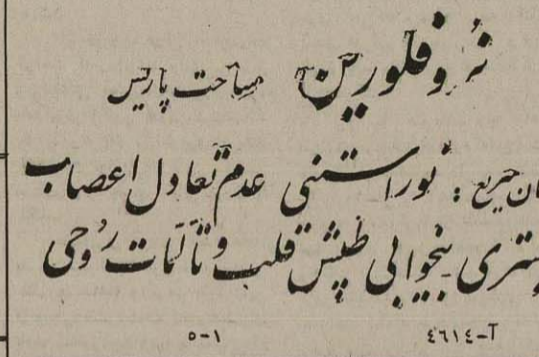 نروفلورین ساخت پاریس
مان سریع : نوراستنی عدم تعادل اعصاب
ستری بیخوابی طپش قلب و تألمات روحی
آ-٤٦١٤ ١-٥